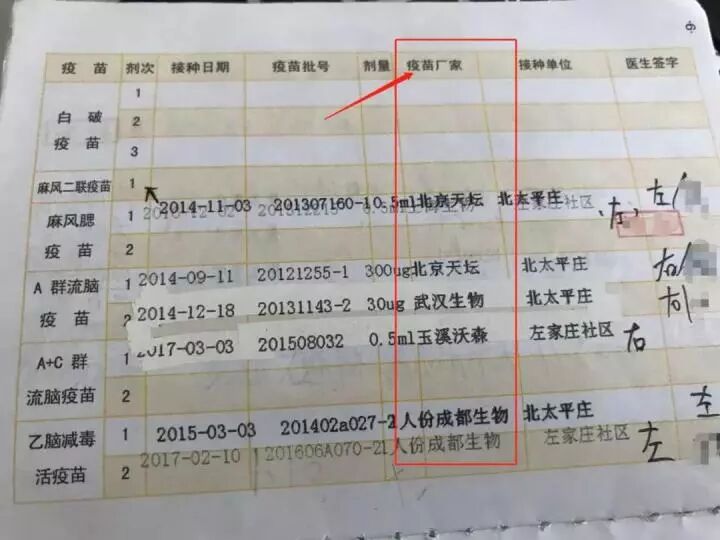 9
疫苗 剂次 接种日期 疫苗批号 剂量 疫苗厂家 接种单位 医生签字
白破疫苗 1
2
3
麻风二联疫苗 1 2014-11-03 201307160-1 0.5ml 北京天坛 北太平庄 左
麻风腮疫苗 1 左家庄社区 左
2
A 群流脑疫苗 1 2014-09-11 20121255-1 300ug 北京天坛 北太平庄 右
2 2014-12-18 20131143-2 30ug 武汉生物 北太平庄 右
A+C 群流脑疫苗 1 2017-03-03 201508032 0.5ml 玉溪沃森 左家庄社区 右
2
乙脑减毒活疫苗 1 2015-03-03 201402a027-2 人份 成都生物 北太平庄 左
2 2017-02-10 201606A070-2 1人份 成都生物 左家庄社区 左